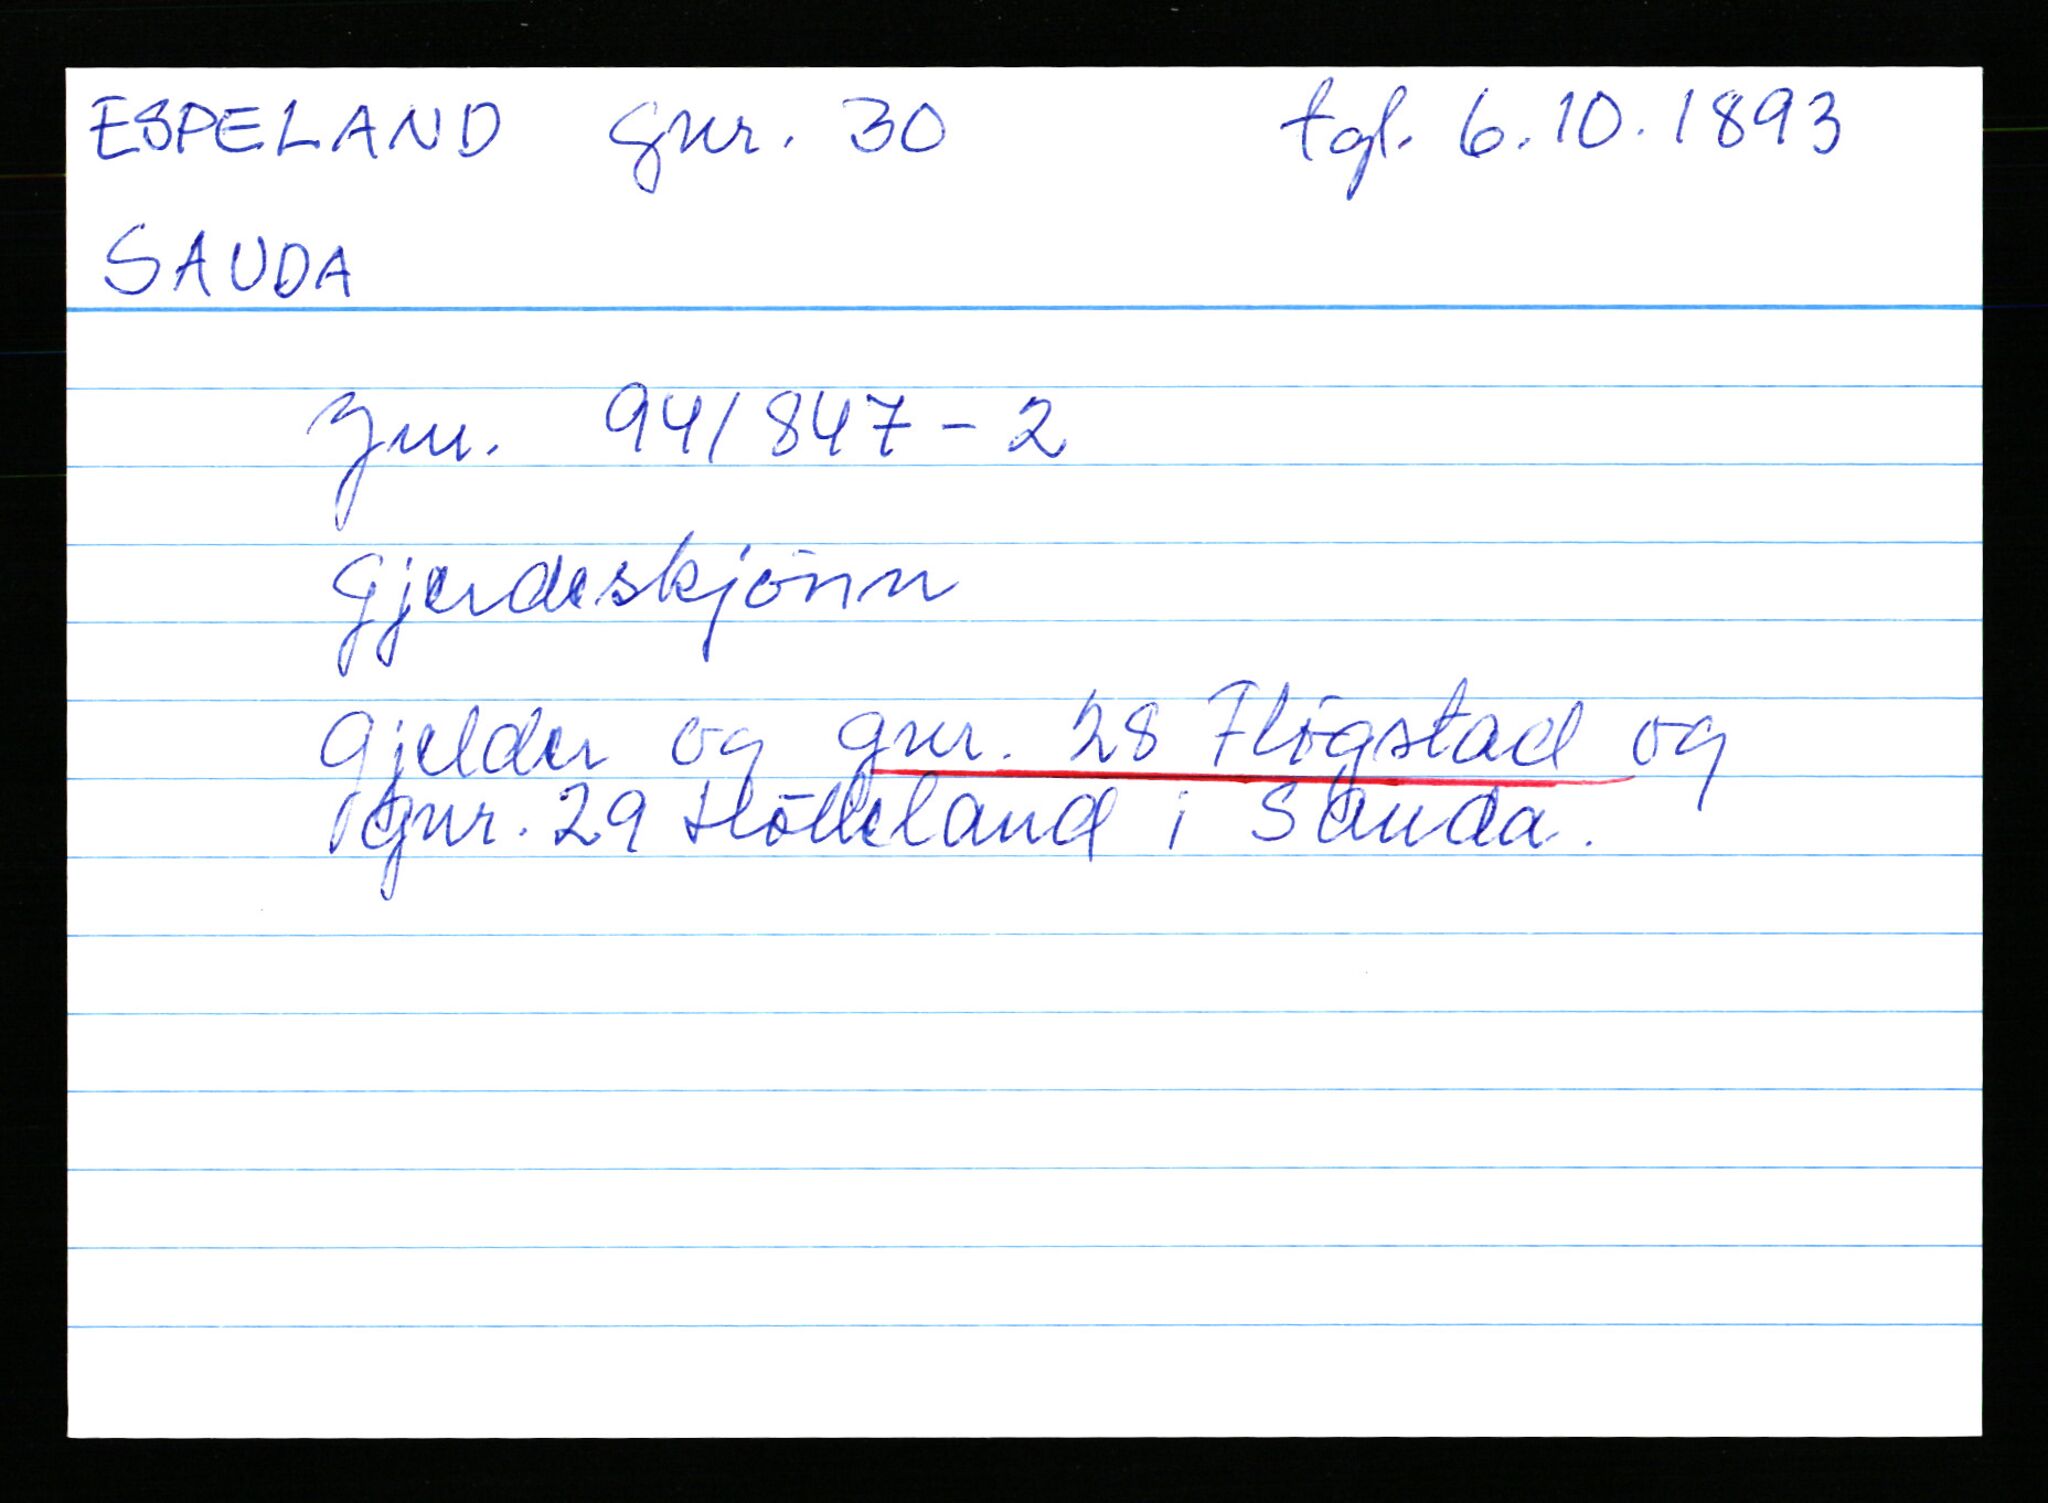 ESPELAND gnr. 30 tgl. 6.10.1893
SAUDA
Jnr. 94/847-2
Gjerdeskjönn
Gjelder og gnr. 28 Flögstad og
gnr. 29 Hölleland i Sauda.